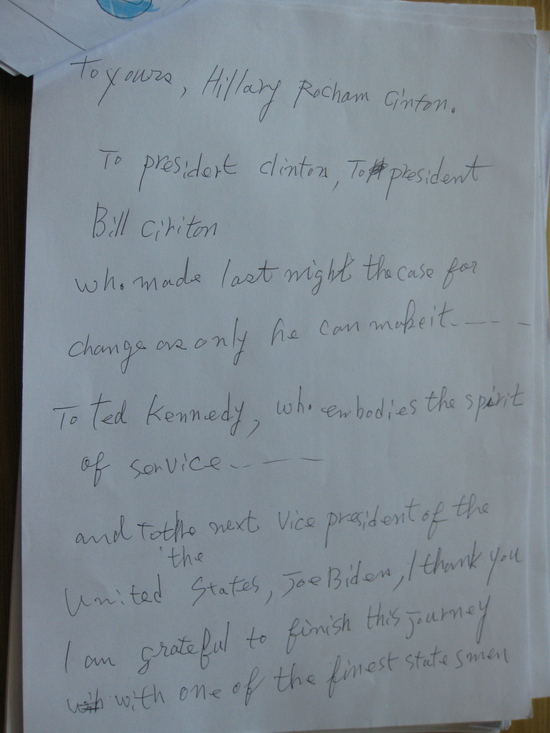 To yours, Hillary Rocham Cinton.
To president clinton, To president
Bill Ciriton
who made last night the case for
change as only he can make it.----
To Ted Kennedy, who embodies the spirit
of service.---
and to the next Vice president of the
the
United States, Joe Biden, I thank you
I am grateful to finish this journey
with one of the finest statesmen